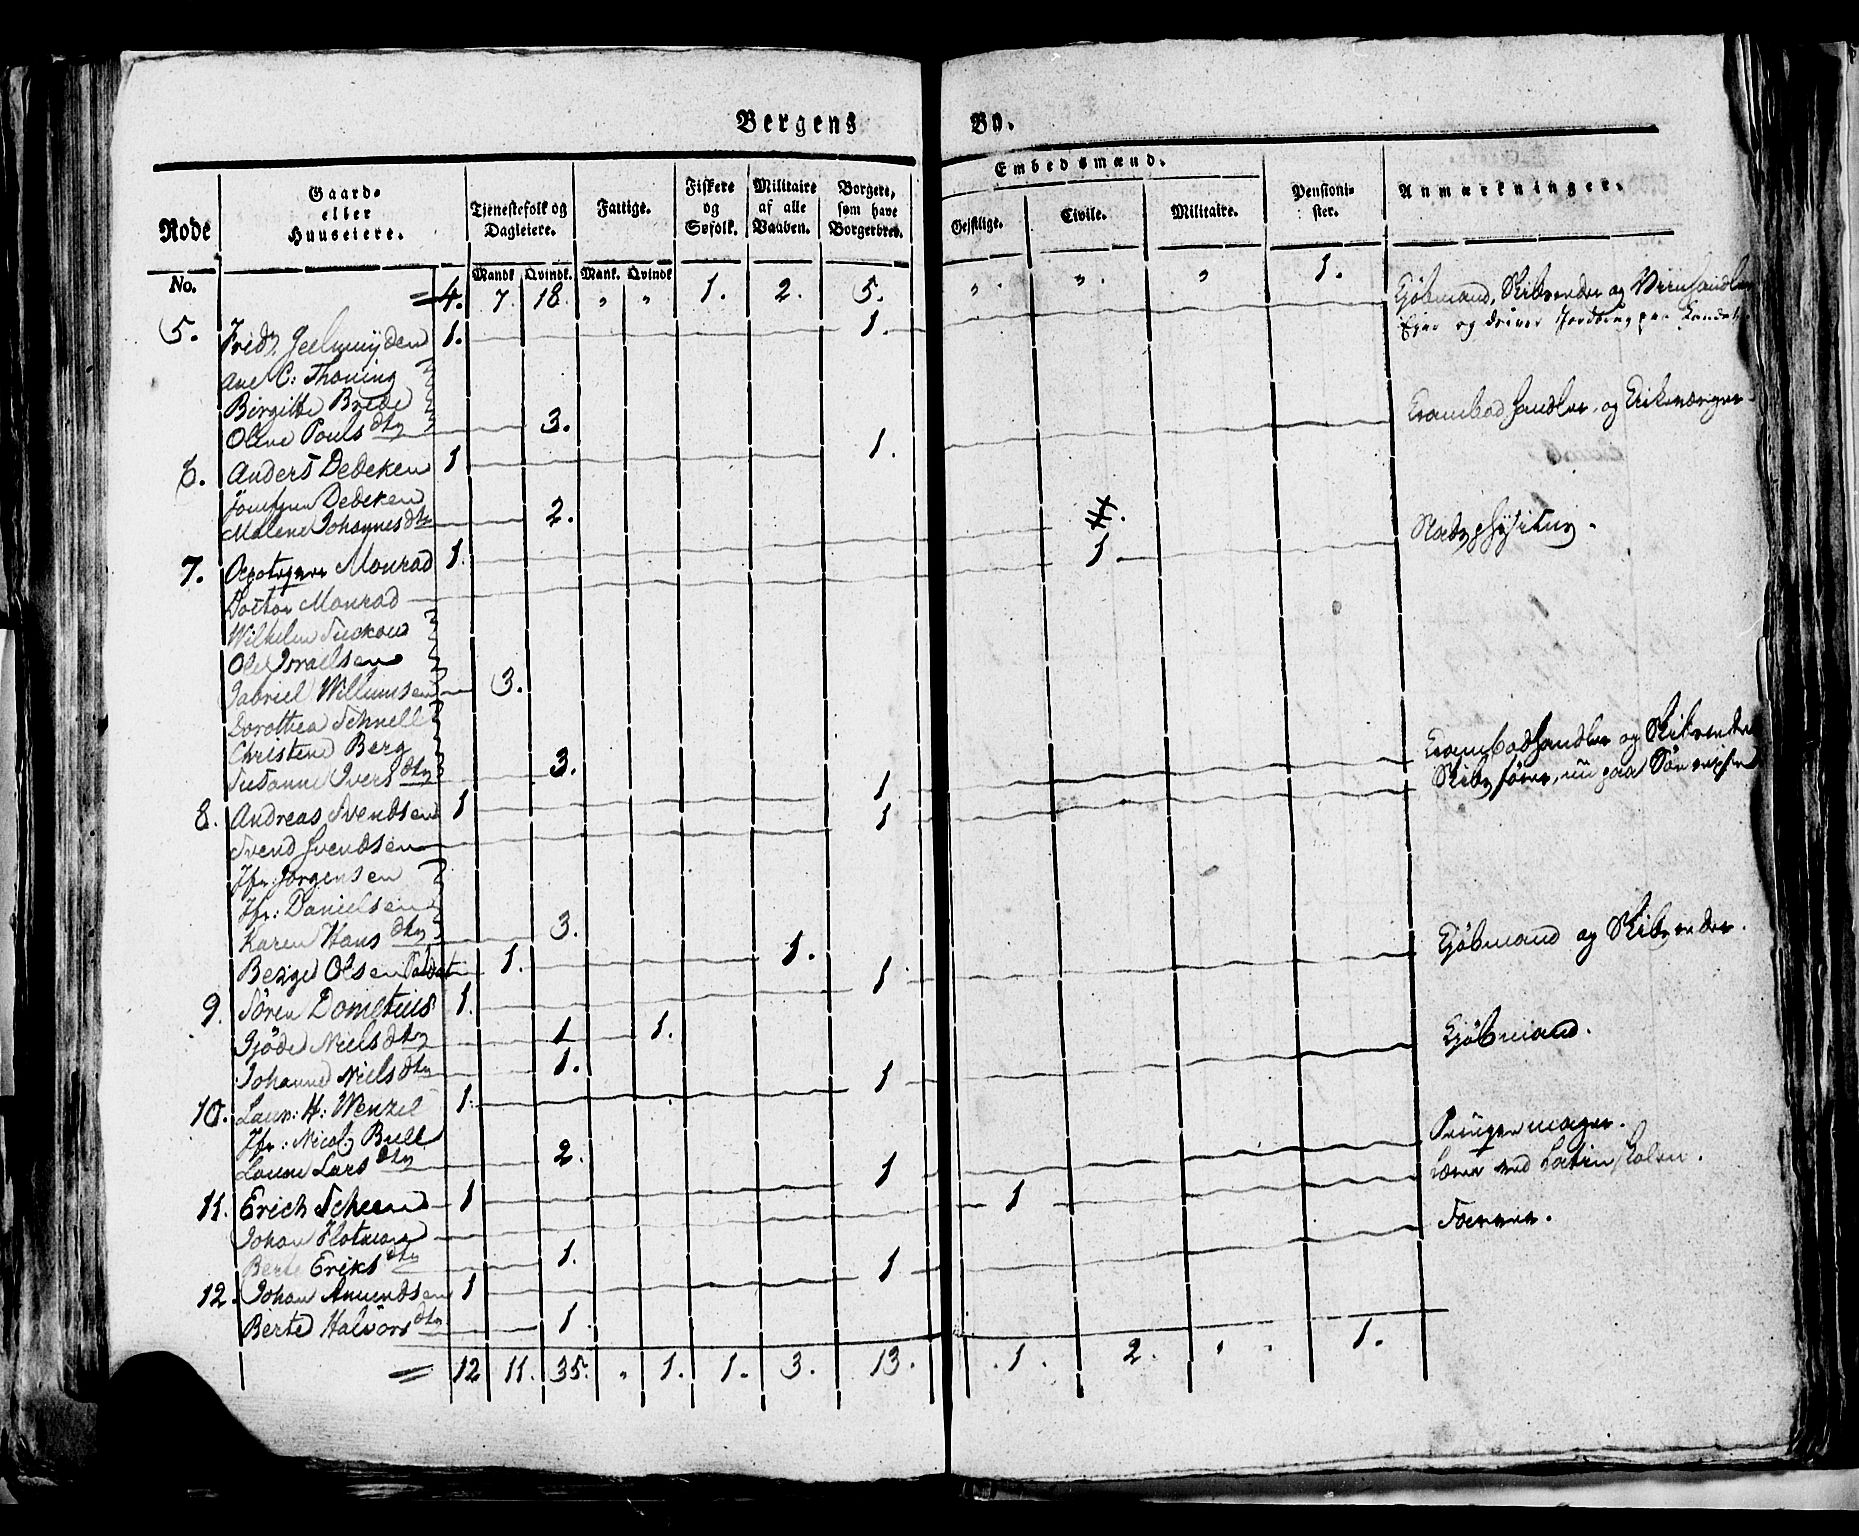 Bergens By.
Rode No. | Gaard- eller Huuseiere. | Tjenestefolk og Dagleiere. Mandk. Qvindk. | Fattige. Mank. Qvindk. | Fiskere og Søfolk. | Militaire af alle Vaaben. | Borgere, som have Borgerbrev. | Embedsmænd. Geistlige. Civile. Militaire. | Pensionister. | Anmærkninger.
= 4. 7. 18. " " 1. 2. 5. " . " . " 1.
5. Fridr. Geelmuijden 1. 1. Kjöbmand, Skibsreder og Viinhandler
Ejer og driver Jordbrug paa Landet
Ane C: Thoning
Birgitte Brede
Oline Pouls dtr 3.
6. Anders Dedeken 1 1. Krambodhandler og
Dedeken
Malene Johannes dtr 2.
7. Monrad 1. 1.
Doctor Monrad 1 Stadsphysicus.
Wilhelm
Ole Israelsen
Gabriel Willumsen 3.
Dorothea Schnell
Christine Berg
Susanne Ivers dtr 3.
8. Andreas Svendsen 1 1 Krambodhandler og Skibsreder
Svend Svendsen 1 Skibsfører, nu paa Søereise
Jfr: Jørgensen
Jfr: Danielsen
Karen Hans dtr 3.
Berge Olsen Soldat 1. 1.
9. Sören Dometius 1. 1 Kjöbmand og Skibsreder.
Gjöde Niels dtr 1 1.
Johanne Niels dtr 1.
10. Laur: H: Wenzel 1. 1 Kjöbmand.
Jfr: Nicol: Bull
Lars dtr 2.
11. Erich Scheen 1 1
Johan 1 Lærer ved Latin Skolen.
Berte Eriks dtr 1.
12. Johan Amundsen 1 1
Berte Halvors dtr 1
= 12 11. 35. " 1. 1. 3. 13. 1. 2. " . 1.